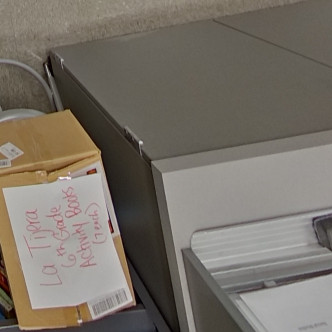 La Tijera
6th Grade
Activity Books
(2 each)